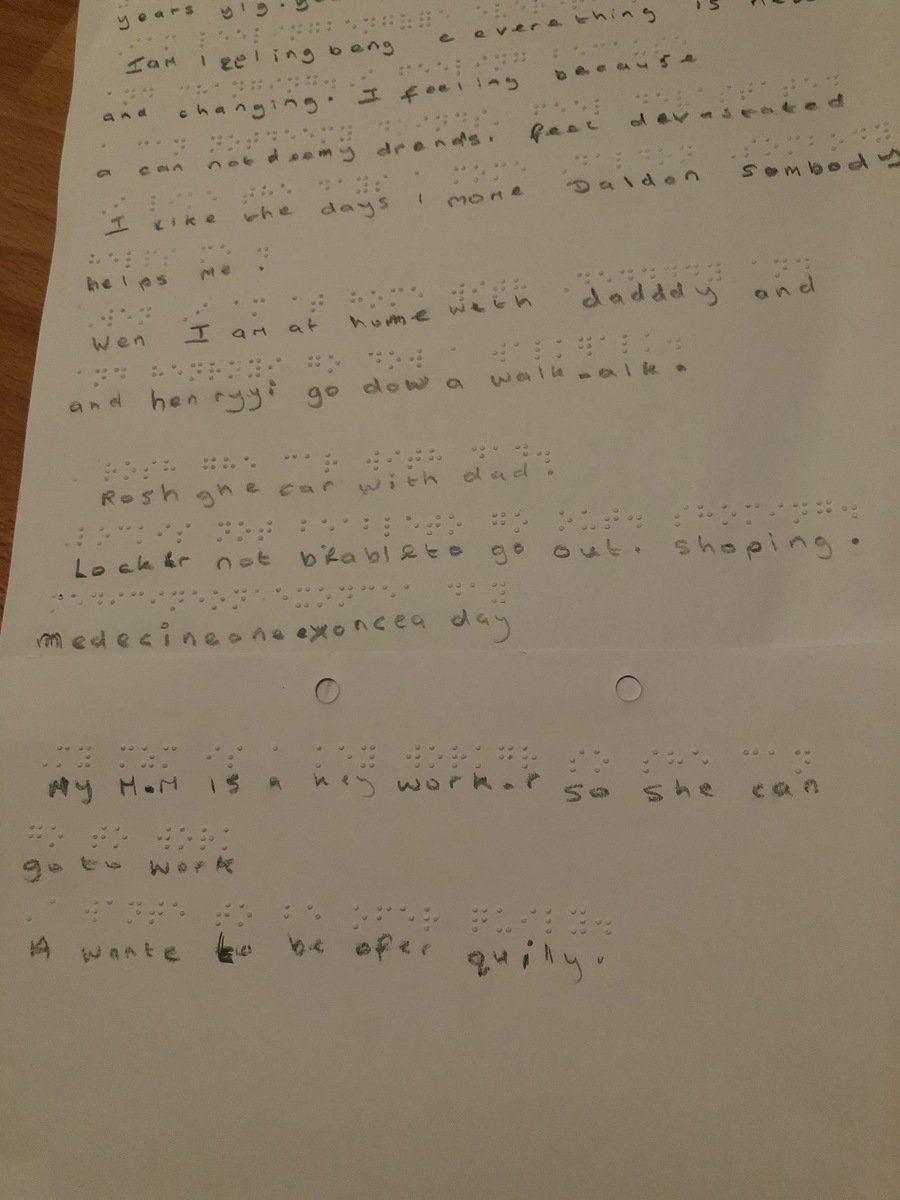 years
I am feeling bang c averething is
and changing. I feeling because
a can not doomy drends. feel devastated
I like the days i mome Daldon sombody
helps me.
Wen I am at home with dadddy and
and henryy: go dow a walk.alk.
Rosh ghe car with dad.
not go out. shoping.
medecineoneexoncea day
My MoM is a key worker so she can
go to work
A wante to be ofer quilly.